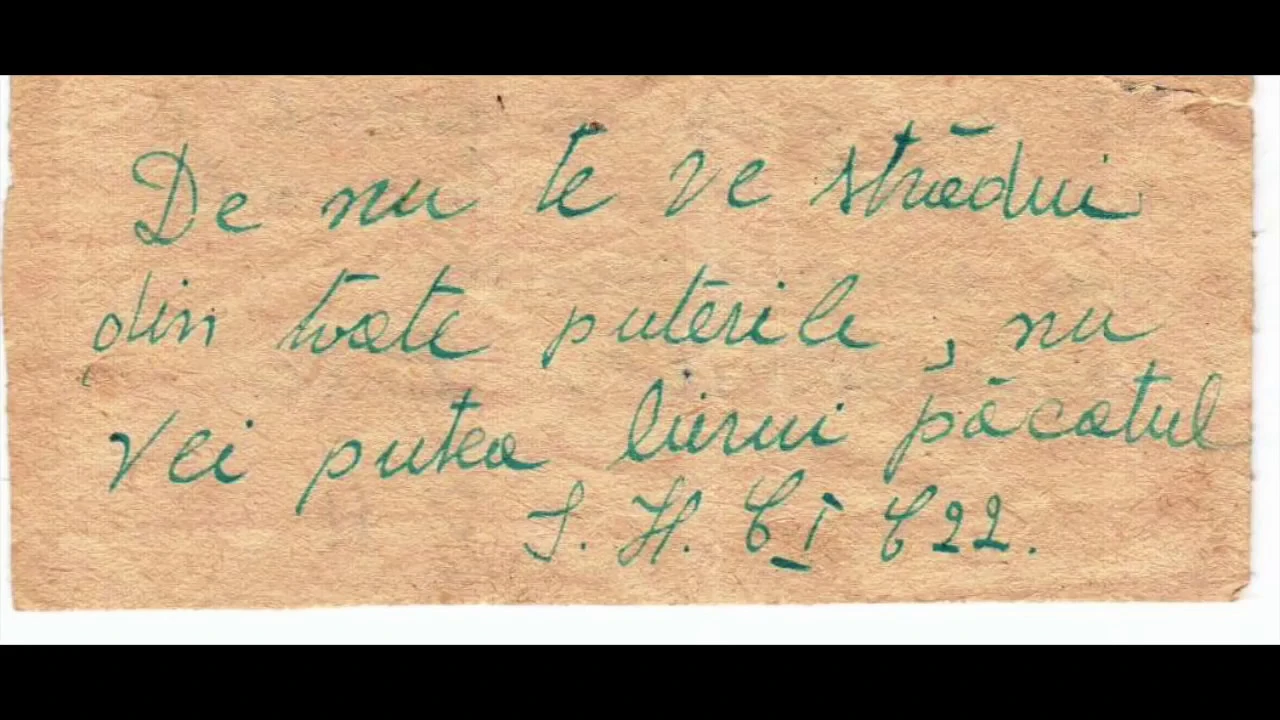 De nu te ve strădui
din toate puterile, nu
vei putea birui păcatul
I. H. C I C 22.